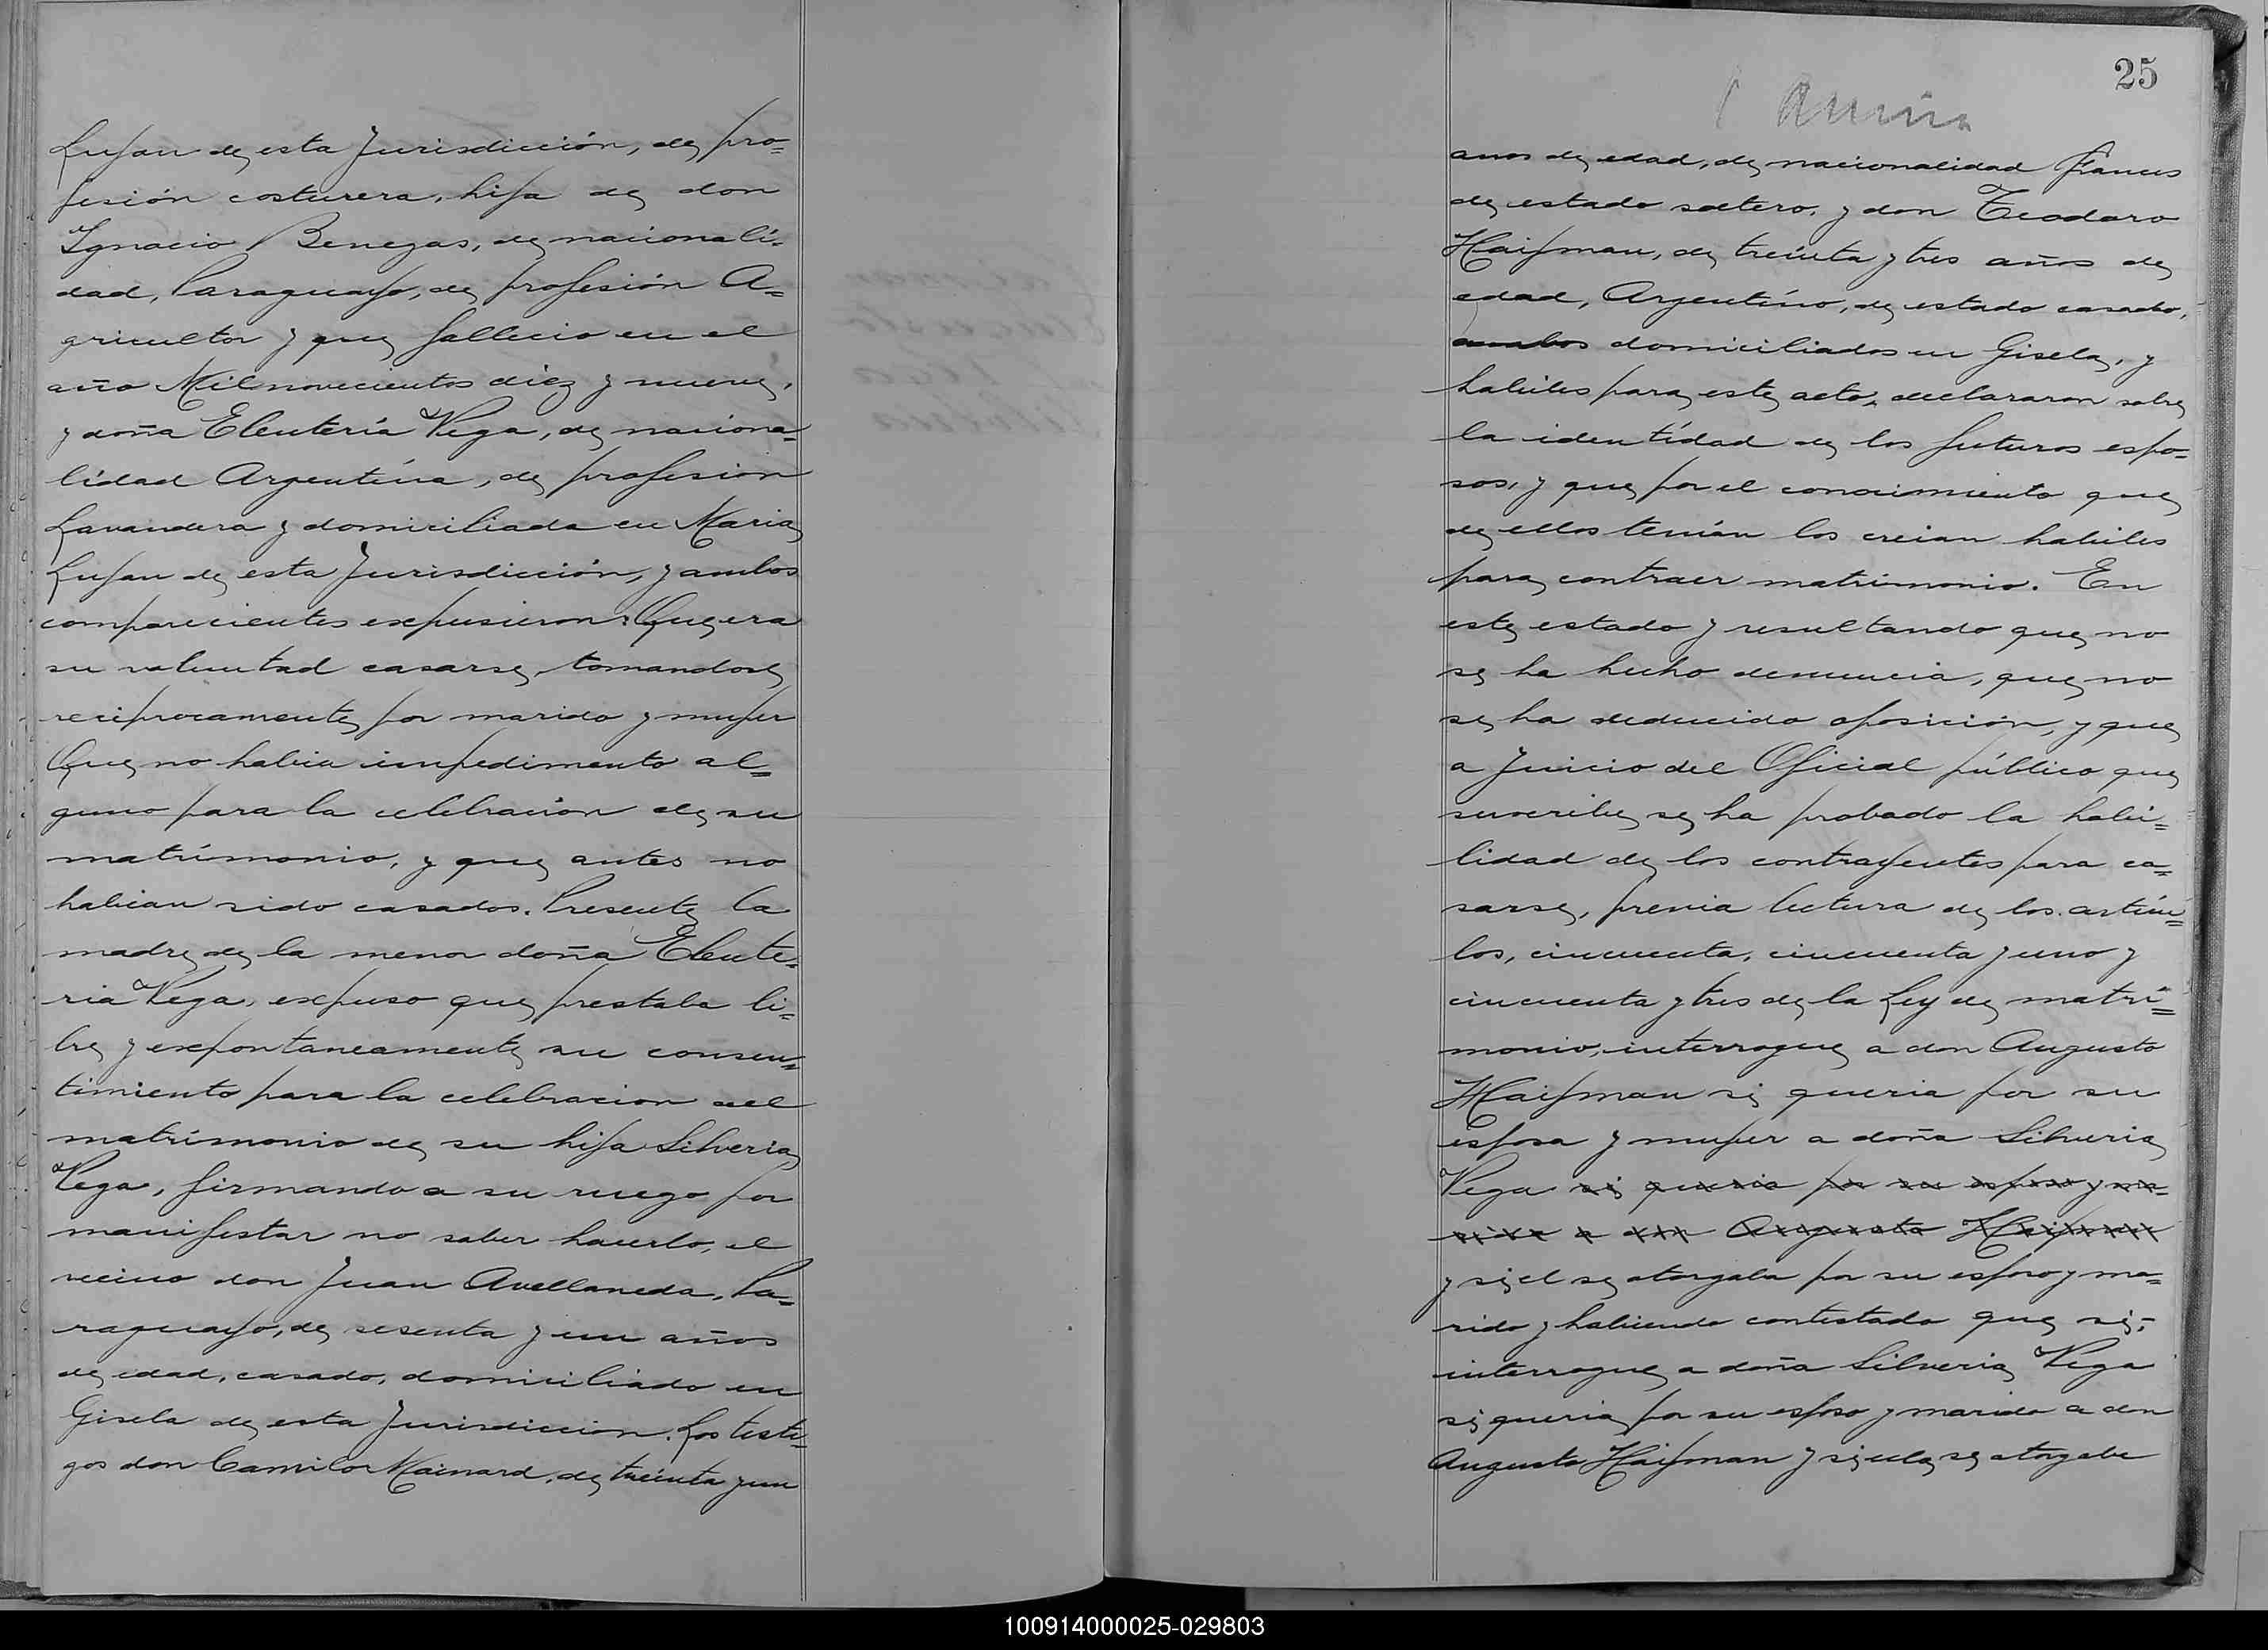 Lujan de esta Jurisdicción, de pro=
fesión costurera, hija de don
Ignacio Benegas, de nacionali=
dad, Paraguayo, de profesión A=
gricultor y que fallecio en el
año Mil novecientos diez y nueve,
y doña Eleuteria Vega, de naciona=
lidad Argentina, de profesion
Lavandera y domiciliada en Maria
Lujan de esta Jurisdicción, y ambos
comparecientes expusieron: Que era
su voluntad casarse, tomandose
reciprocamente por marido y mujer
Que no habia impedimento al=
guno para la celebración de su
matrimonio, y que antes no
habian sido casados. Presente la
madre de la menor doña Eleute=
ria Vega, expuso que prestaba li=
bre y expontaneamente su consen=
timiento para la celebracion del
matrimonio de su hija Silveria
Vega, firmando a su ruego por
manifestar no saber hacerlo, el
vecino don Juan Avellaneda, Pa=
raguayo, de sesenta y un años
de edad, casado, domiciliado en
Gisela de esta Jurisdiccion. Los testi=
gos don Camilo Mainard, de treinta y un
25
años de edad, de nacionalidad Frances
de estado soltero, y don Teodoro
Haifman, de treinta y tres años de
edad, Argentino, de estado casado,
ambos domiciliados en Gisela, y
habiles para este acto, declararon sobre
la identidad de los futuros espo=
sos, y que por el conocimiento que
de ellos tenían los creian habiles
para contraer matrimonio. En
este estado y resultando que no
se ha hecho denuncia, que no
se ha deducido oposición, y que
a Juicio del Oficial público que
suscribe se ha probado la habi=
lidad de los contrayentes para ca=
sarse, previa lectura de los artícu=
los, cincuenta, cincuenta y uno y
cincuenta y tres de la Ley de matri=
monio, interrogue a don Augusto
Haifman si queria por su
esposa y mujer a doña Silveria
Vega si queria por su esposo y ma=
rido a don Augusto Haifman
y si el se otorgaba por su esposo y ma=
rido y habiendo contestado que si;
interrogue a doña Silveria Vega
si queria por su esposo y marido a don
Augusto Haifman y si ella se otorgaba
100914000025-029803